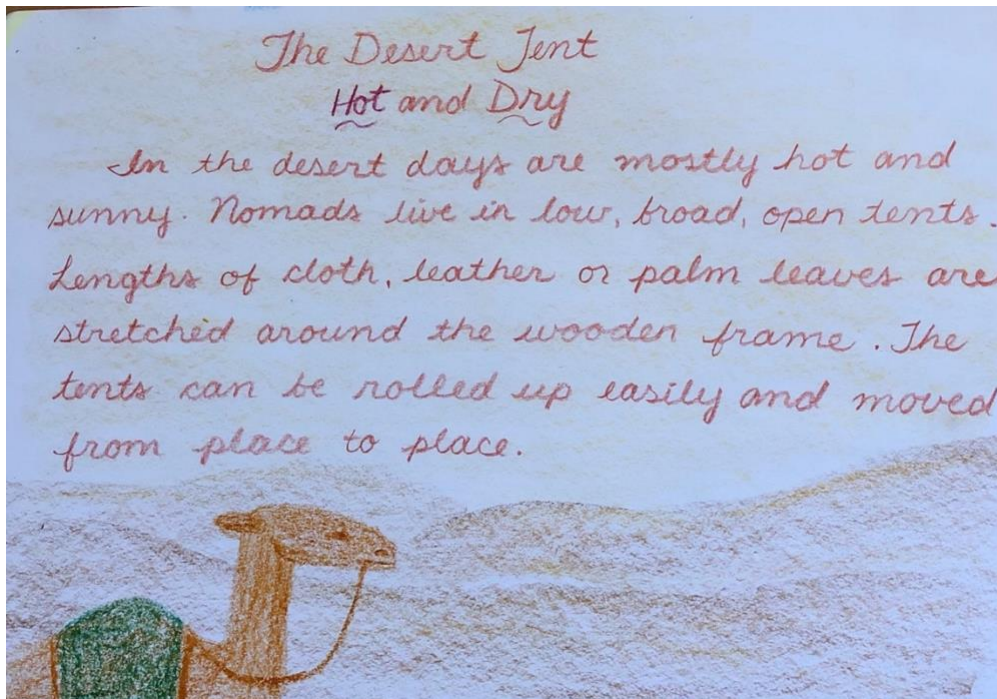 The Desert Tent
Hot and Dry
In the desert days are mostly hot and
sunny. Nomads live in low, broad, open tents.
Lengths of cloth, leather or palm leaves are
stretched around the wooden frame. The
tents can be rolled up easily and moved
from place to place.